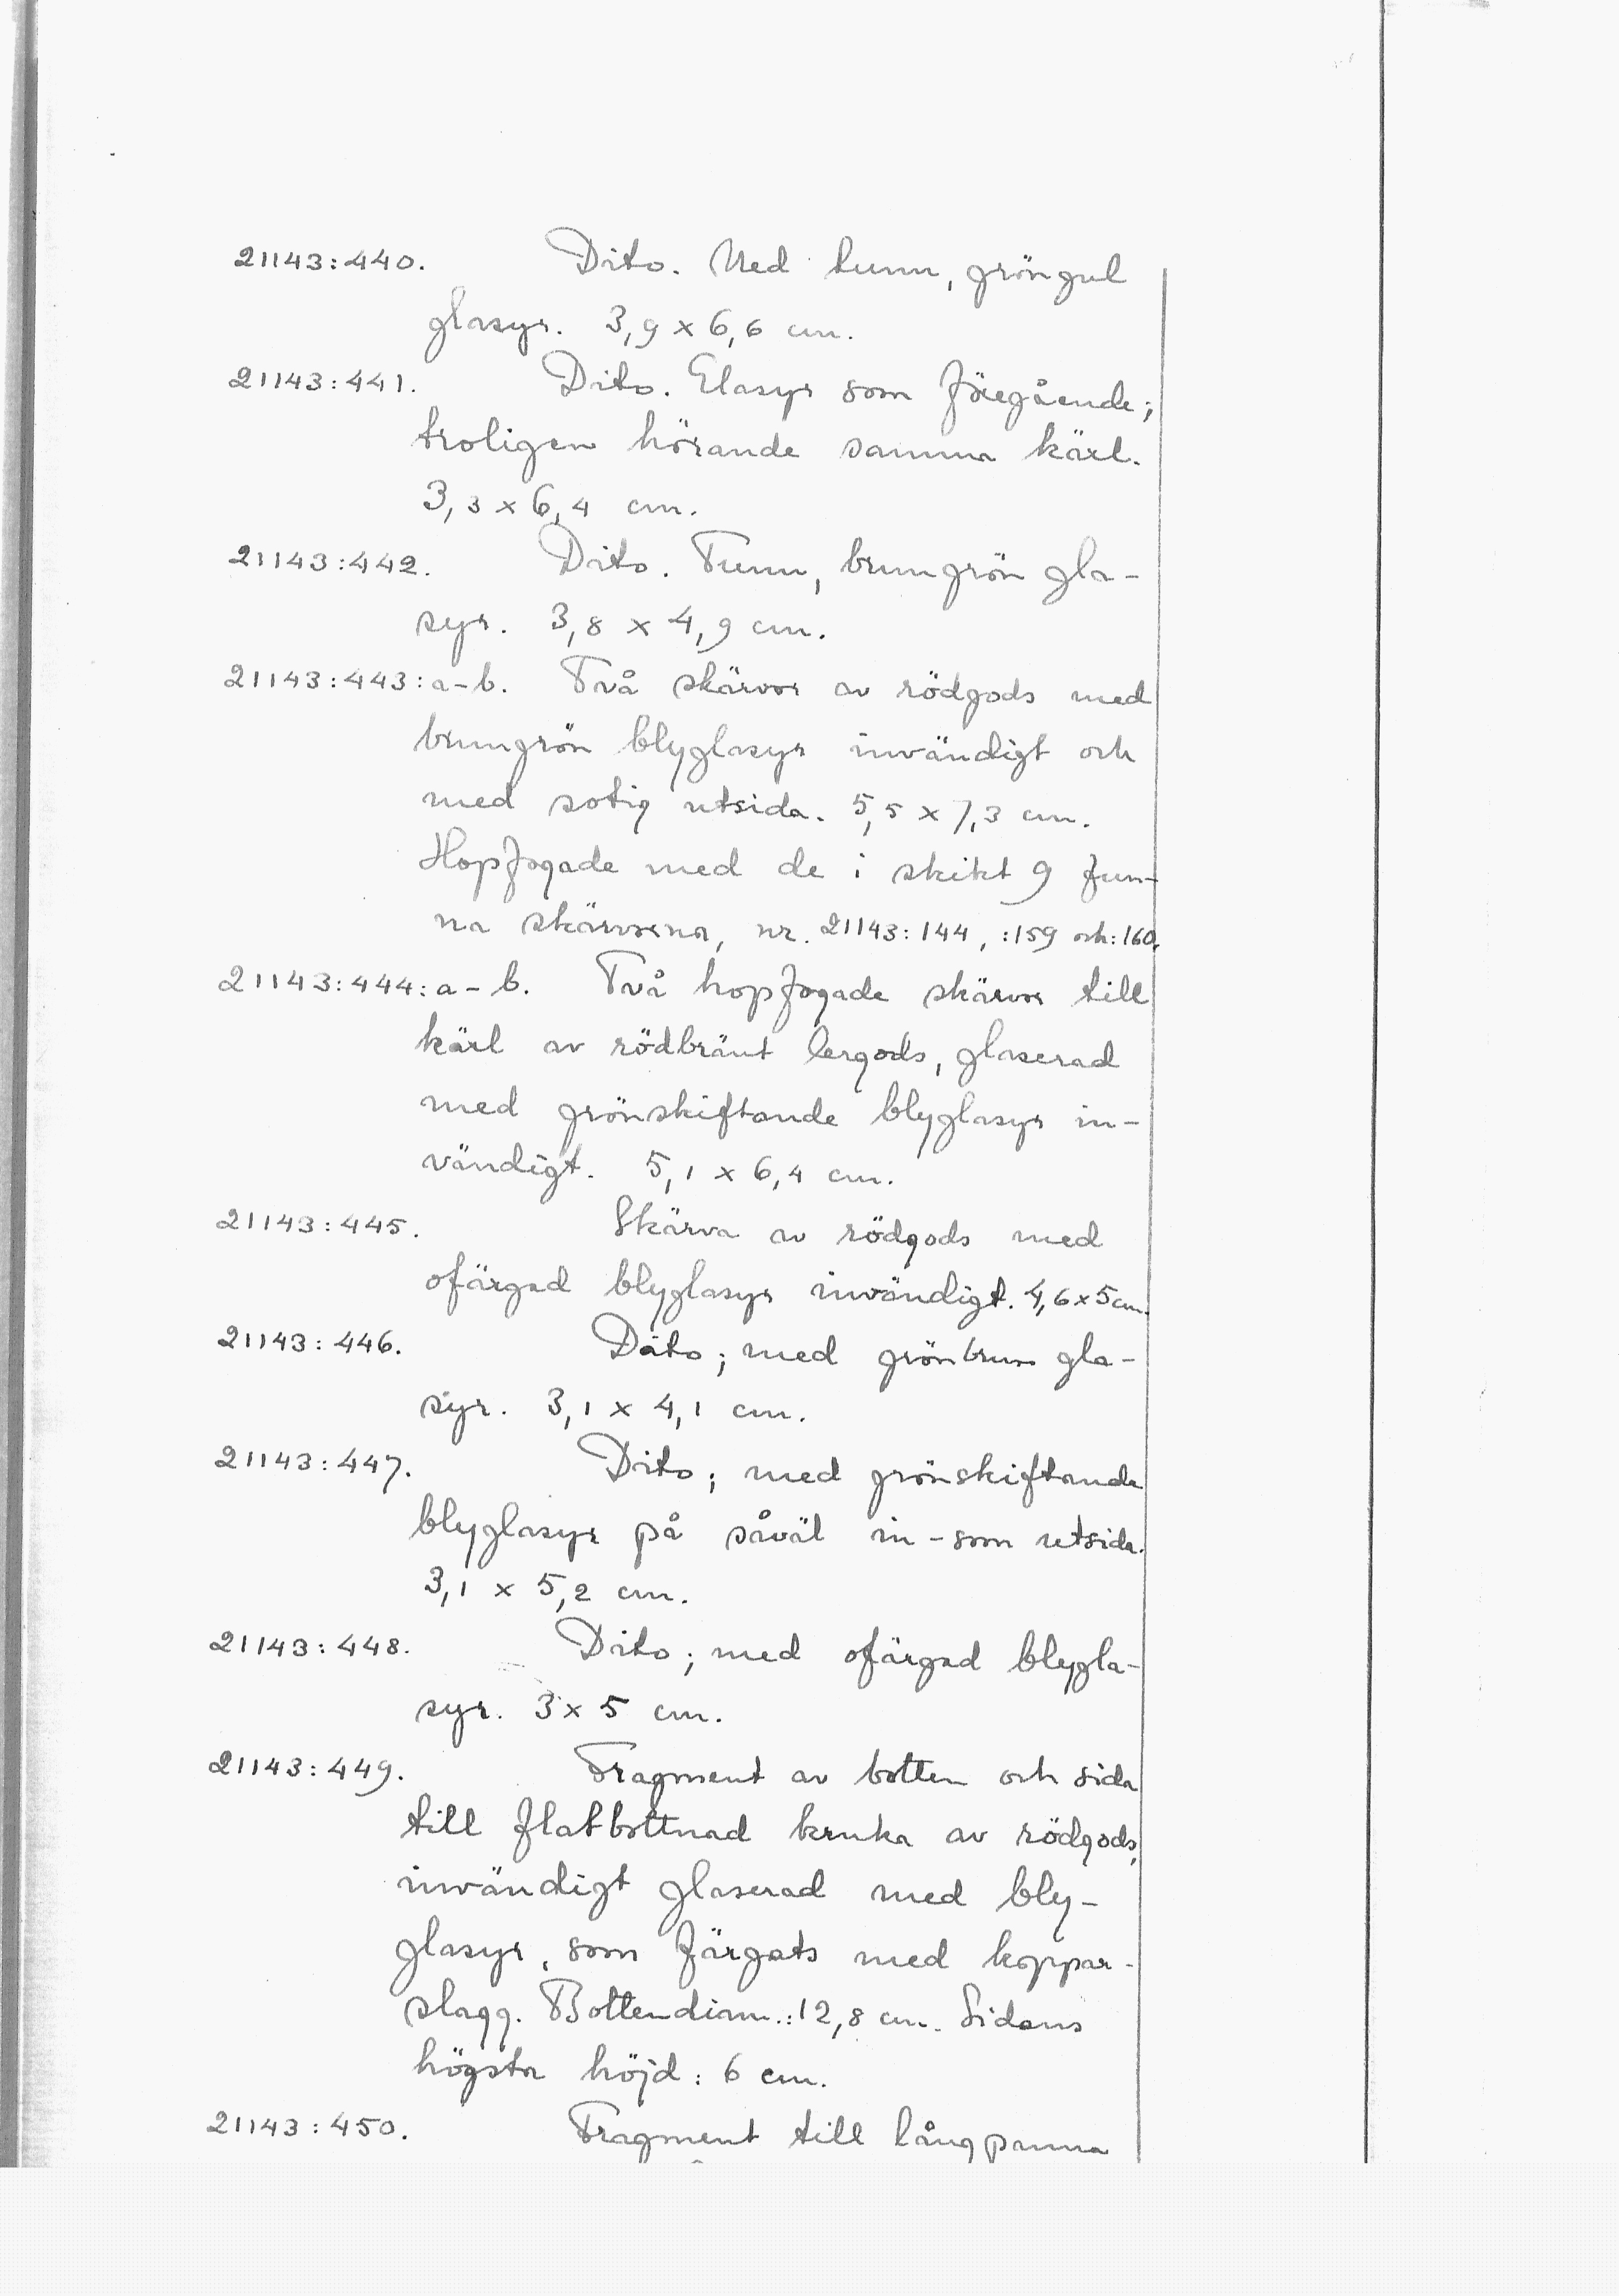 21143:440. Dito. Med tunn, gröngul
glasyr. 3,9 x 6,6 cm.
21143:441. Dito. Glasyr som föregående;
troligen hörande samma kärl.
3,3 x 6,4 cm.
21143:442. Dito. Tunn, brungrön gla-
syr. 3,8 x 4,9 cm.
21143:443:a-b. Två skärvor av rödgods med
brungrön blyglasyr invändigt och
med sotig utsida. 5,5 x 7,3 cm.
Hopfogade med de i skikt 9 fun-
na skärvorna, nr. 21143:144, :159 och :160.
21143:444:a-b. Två hopfogade skärvor till
kärl av rödbränt lergods, glaserad
med grönskiftande blyglasyr in-
vändigt. 5,1 x 6,4 cm.
21143:445. Skärva av rödgods med
ofärgad blyglasyr invändigt. 4,6 x 5 cm.
21143:446. Dito; med grönbrun gla-
syr. 3,1 x 4,1 cm.
21143:447. Dito; med grönskiftande
blyglasyr på såväl in-som utsida.
3,1 x 5,2 cm.
21143:448. Dito; med ofärgad blygla-
syr. 3 x 5 cm.
21143:449. Fragment av botten och sida
till flatbottnad kruka av rödgods,
invändigt glaserad med bly-
glasyr, som färgats med koppar-
slagg. Bottendiam.: 12,8 cm. Sidans
högsta höjd: 6 cm.
21143:450. Fragment till långpanna